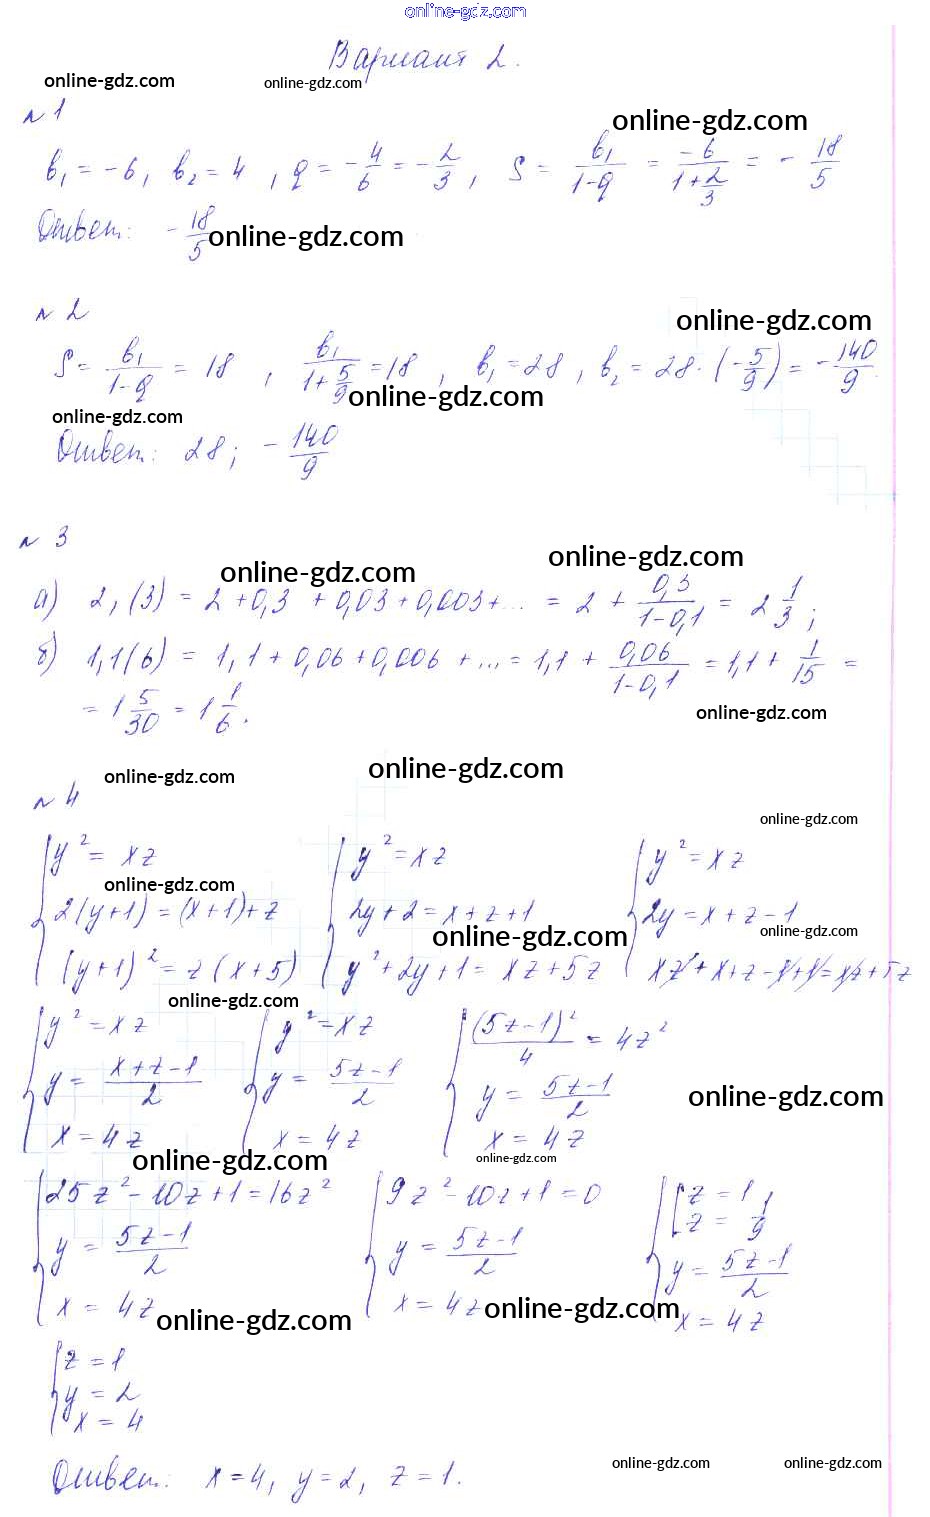 online-gdz.com
Вариант 2.
online-gdz.com online-gdz.com
№ 1
online-gdz.com
b₁ = -6, b₂ = 4, q = -4/6 = -2/3, S = b₁/(1-q) = -6/(1+2/3) = -18/5
Ответ: -18/5
online-gdz.com
№ 2
online-gdz.com
S = b₁/(1-q) = 18, b₁/(1+5/9) = 18, b₁ = 28, b₂ = 28·(-5/9) = -140/9.
online-gdz.com
online-gdz.com
Ответ: 28; -140/9
№ 3
online-gdz.com
online-gdz.com
а) 2,(3) = 2 + 0,3 + 0,03 + 0,003 + ... = 2 + 0,3/(1-0,1) = 2 1/3;
б) 1,1(6) = 1,1 + 0,06 + 0,006 + ... = 1,1 + 0,06/(1-0,1) = 1,1 + 1/15 =
= 1 5/30 = 1 1/6.
online-gdz.com
online-gdz.com online-gdz.com
№ 4
online-gdz.com
y² = xz y² = xz y² = xz
online-gdz.com
2(y+1) = (x+1)+z 2y+2 = x+z+1 2y = x+z-1
online-gdz.com online-gdz.com
(y+1)² = z(x+5) y²+2y+1 = xz+5z xz+x+z-1+1 = xz+5z
online-gdz.com
y² = xz y² = xz (5z-1)²/4 = 4z²
y = (x+z-1)/2 y = (5z-1)/2 y = (5z-1)/2
online-gdz.com
x = 4z x = 4z x = 4z
online-gdz.com online-gdz.com
25z²-10z+1 = 16z² 9z²-10z+1 = 0 z = 1
z = 1/9
y = (5z-1)/2 y = (5z-1)/2 y = (5z-1)/2
x = 4z x = 4z x = 4z
online-gdz.com online-gdz.com
z = 1
y = 2
x = 4
Ответ: x = 4, y = 2, z = 1.
online-gdz.com online-gdz.com